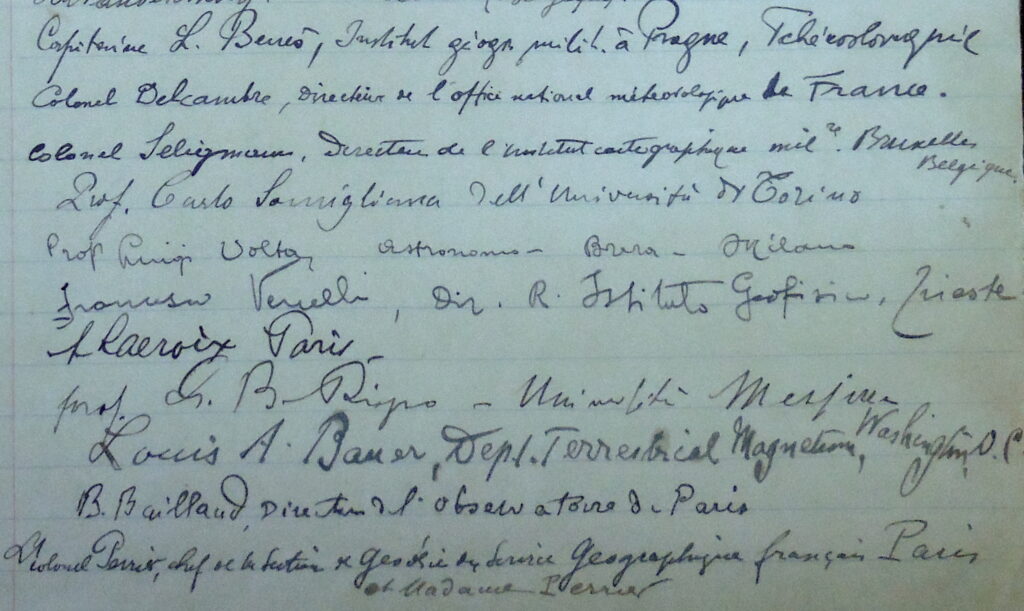 Capitaine L. Beneš, Institut géogr. milit. à Prague, Tchécoslovaquie
Colonel Delcambre, Directeur de l'office national météorologique de France.
Colonel Seligmann, Directeur de l'institut cartographique milre. Bruxelles
Belgique.
Prof. Carlo Somigliana dell' Università di Torino
Prof Luigi Volta, astronomo - Brera - Milano
Francesco Vercelli, Dir. R. Istituto Geofisico, Trieste
A Lacroix Paris.
prof. G. B. Rizzo - Università Messina
Louis A. Bauer, Dept. Terrestrial Magnetism, Washington, D. C.
B. Baillaud, Directeur de l'observatoire de Paris
Lt Colonel Perrier, chef de la Section de Géodésie du Service Géographique français Paris
et Madame Perrier